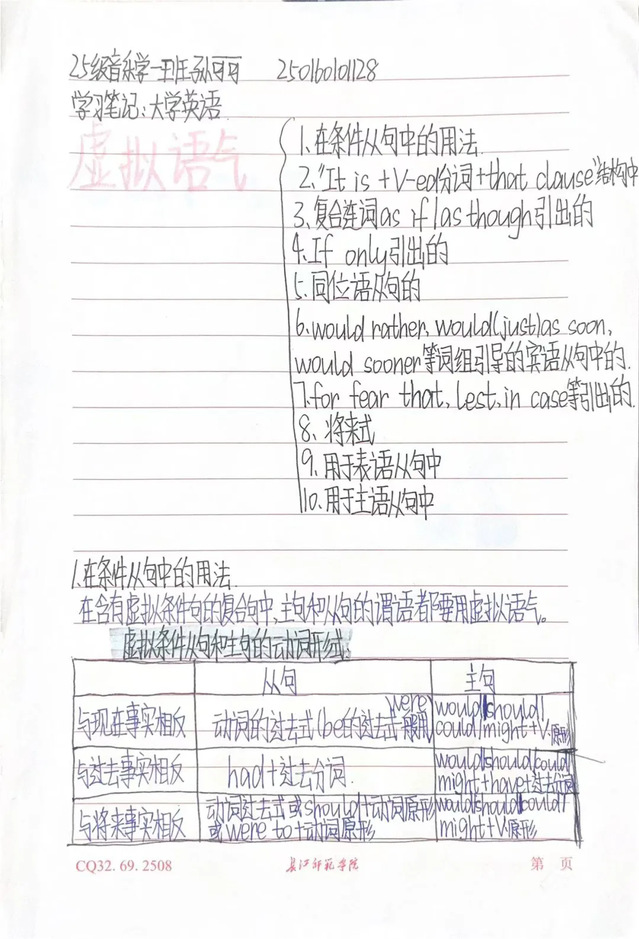 25级音乐学一班 孙可可 250160101128
学习笔记:大学英语
虚拟语气
1.在条件从句中的用法
2."It is +V-ed分词+that clause"结构中
3.复合连词as if/as though引出的
4.If only引出的
5.同位语从句的
6.would rather, would(just)as soon,
would sooner等词组引导的宾语从句中的.
7.for fear that, lest, in case等引出的.
8、将来式
9、用于表语从句中
10、用于主语从句中
1.在条件从句中的用法.
在含有虚拟条件句的复合句中、主句和从句的谓语都要用虚拟语气。
虚拟条件从句和主句的动词形式:
从句 主句
与现在事实相反 动词的过去式(be的过去式一般用were) would/should/could/might+V.原形
与过去事实相反 had+过去分词. would/should/could/might+have+过去分词
与将来事实相反 动词过去式或should+动词原形或were to+动词原形 would/should/could/might+V.原形
CQ32.69.2508 长江师范学院 第 页